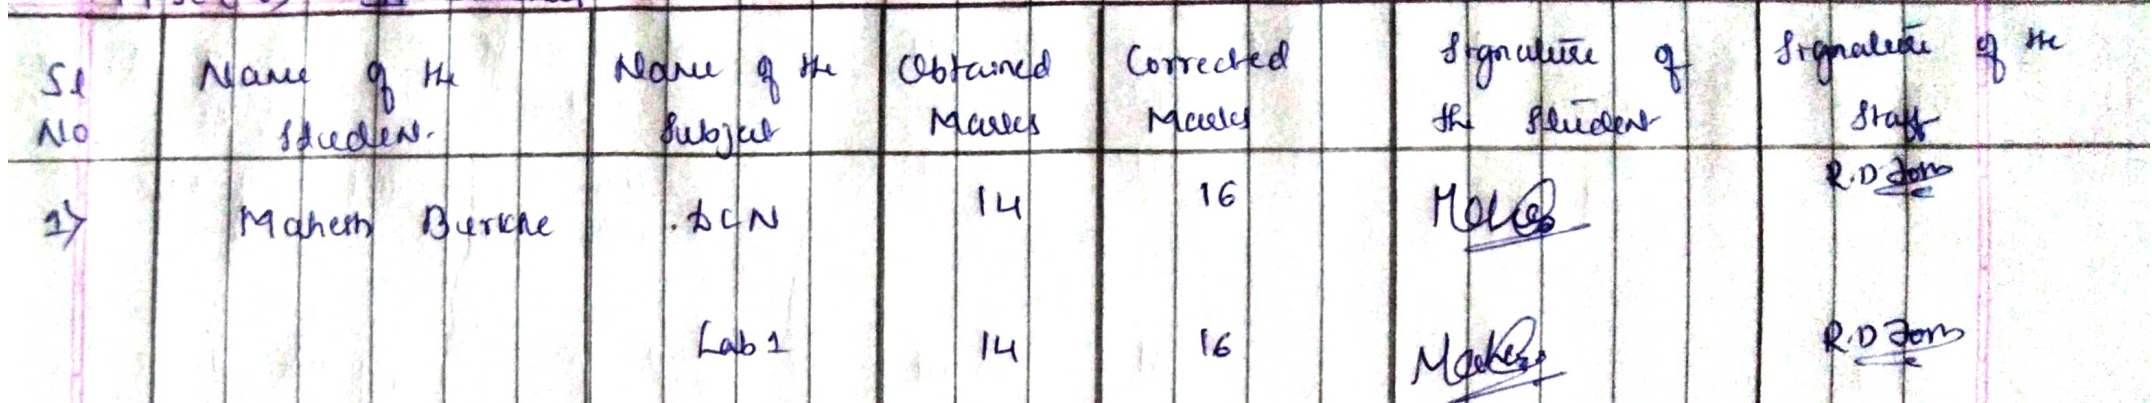 Sl No | Name of the Student | Name of the Subject | Obtained Marks | Corrected Marks | Signature of the Student | Signature of the Staff
1) | Mahesh Burkhe | DCN | 14 | 16 | | R.D
Lab 1 | 14 | 16 | | R.D